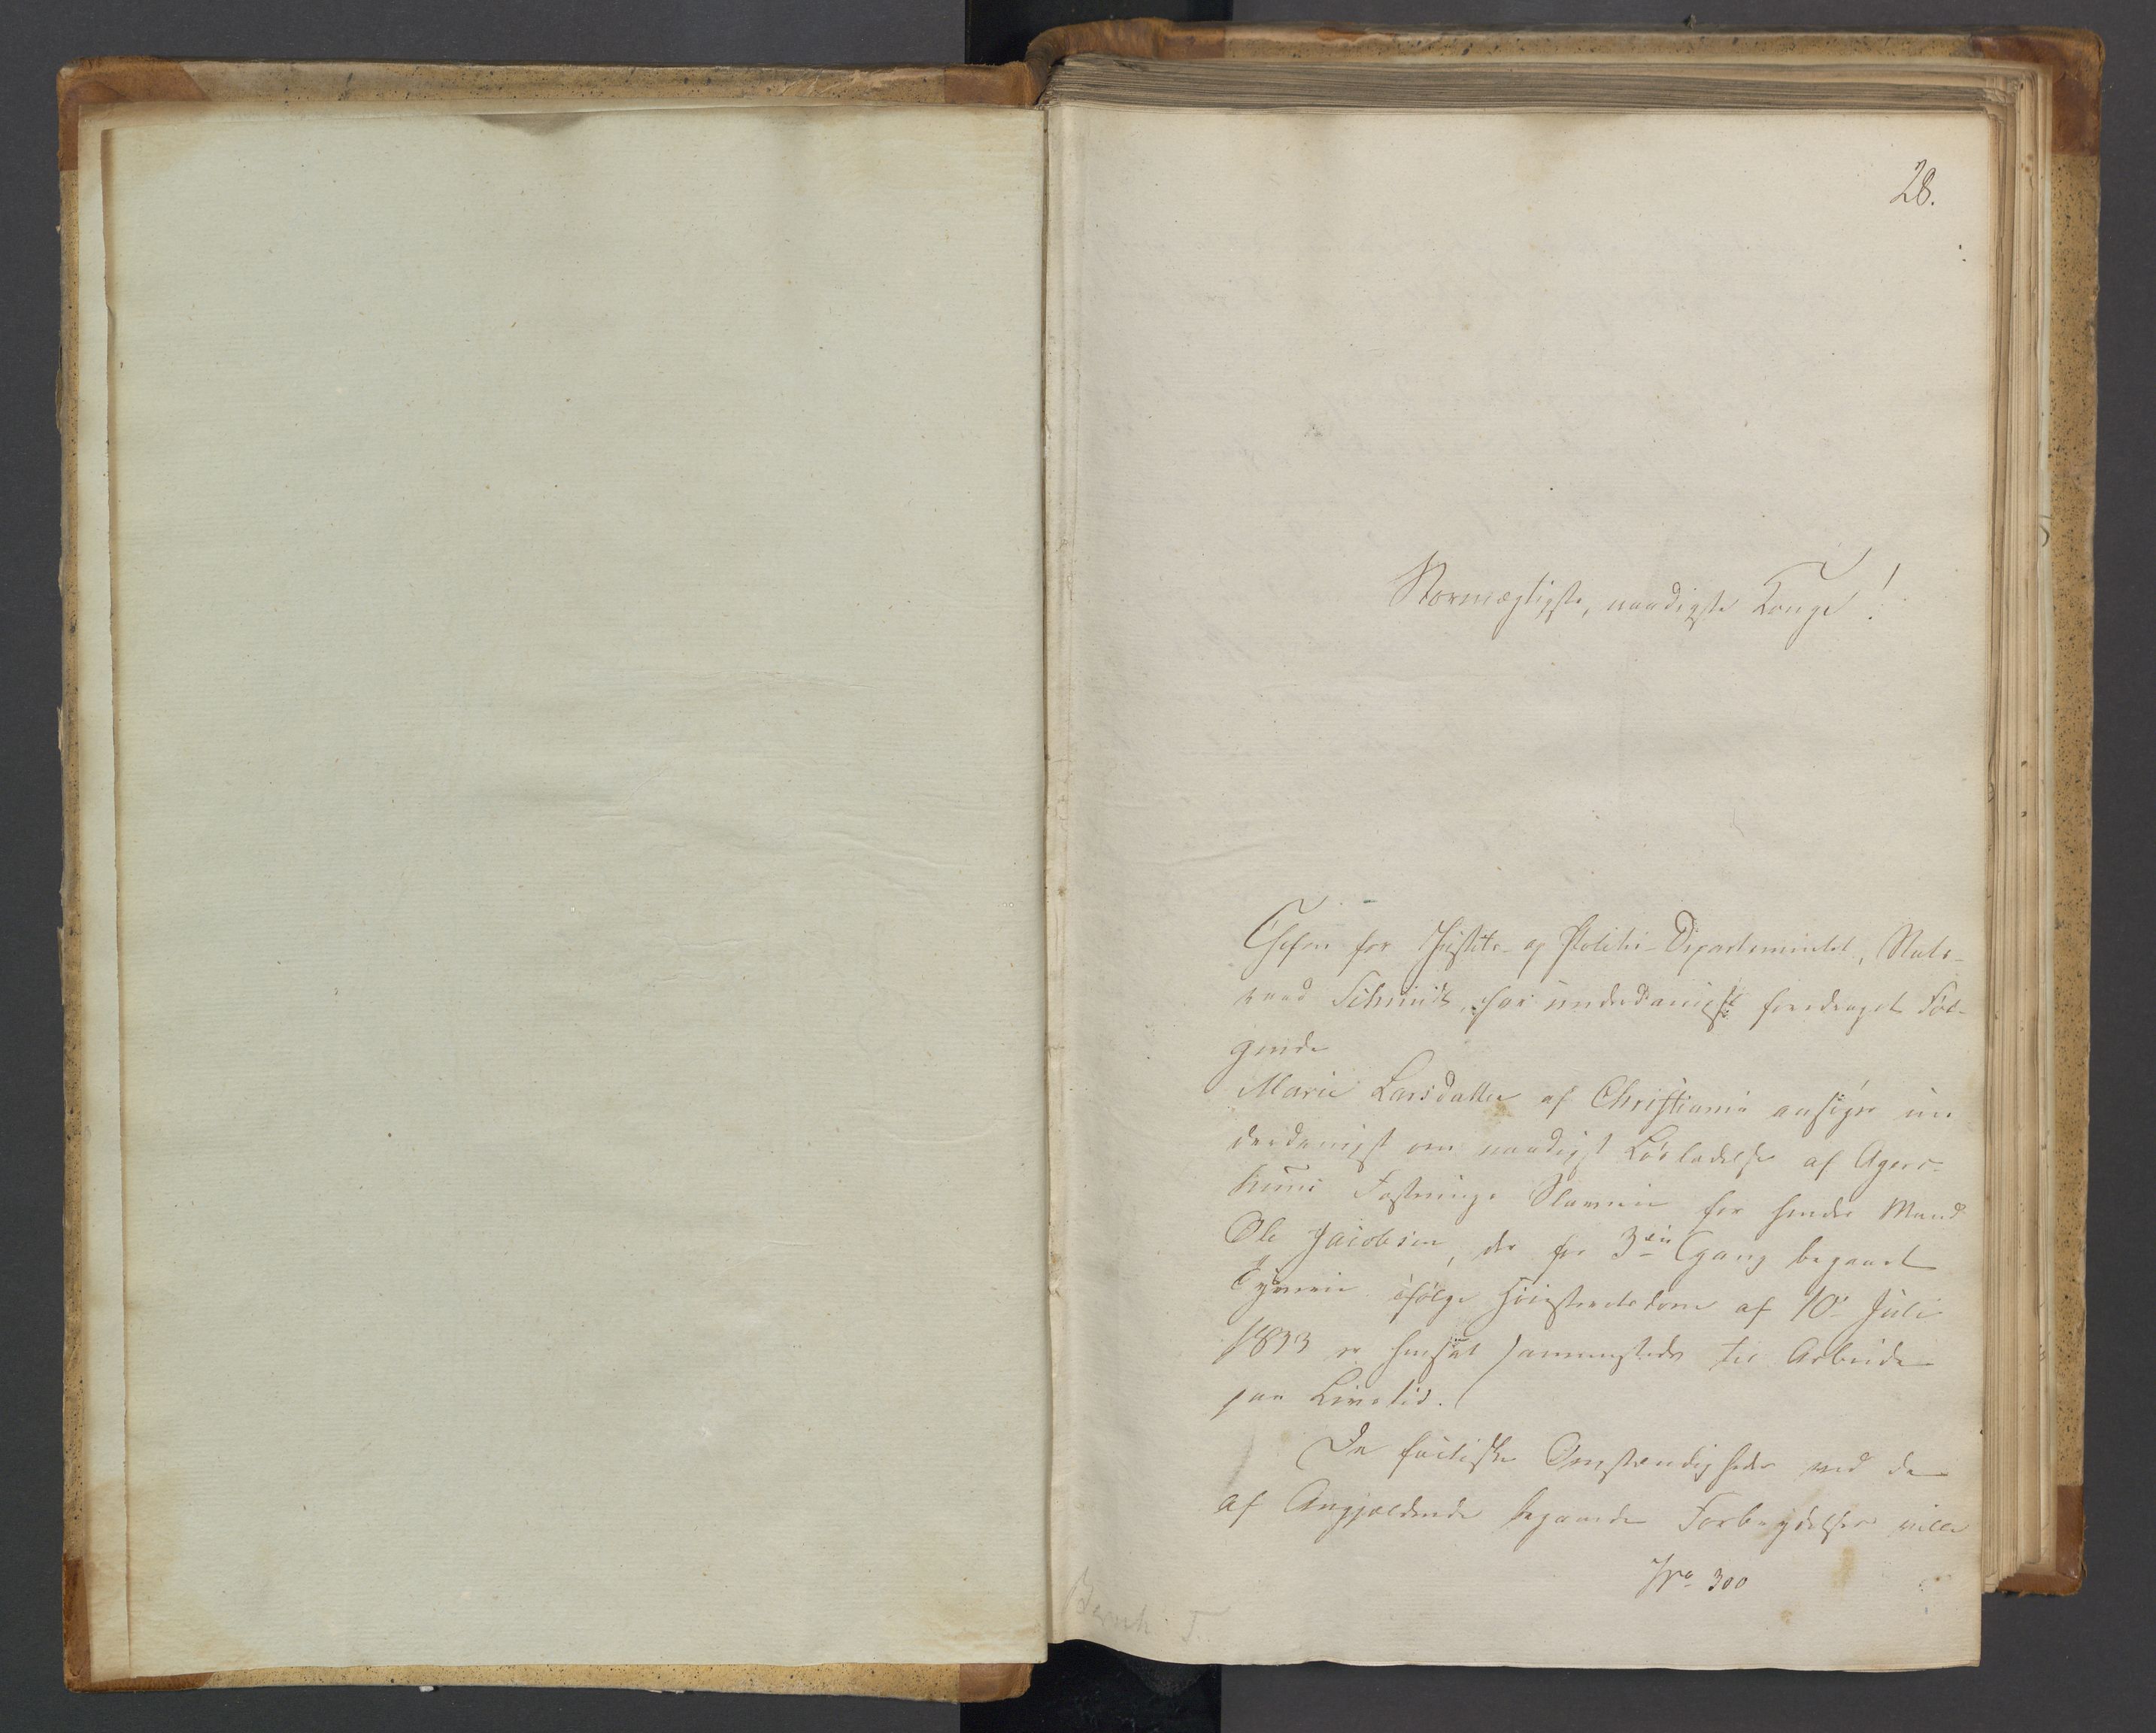 28.
Stormægtigste, naadigste Konge!
Chefen for Justits- og Politi-Departementet, Stats-
raad Schmidt, har underdanigst foredraget Føl-
gende
Marie Larsdatter af Christiania ansøger un
derdanigst om naadigst Løsladelse af Agers-
huus Fæstnings Slaverie for hendes Mand
Ole Jacobsen, der for 3die Gang begaaet
Tyverie ifølge Høiesteretsdom af 10. Juli
1833 er hensat sammesteds til Arbeide
paa Livstid.
De factiske Omstændigheder ved de
af Angjældende begaaede Forbrydelser ville
No 300